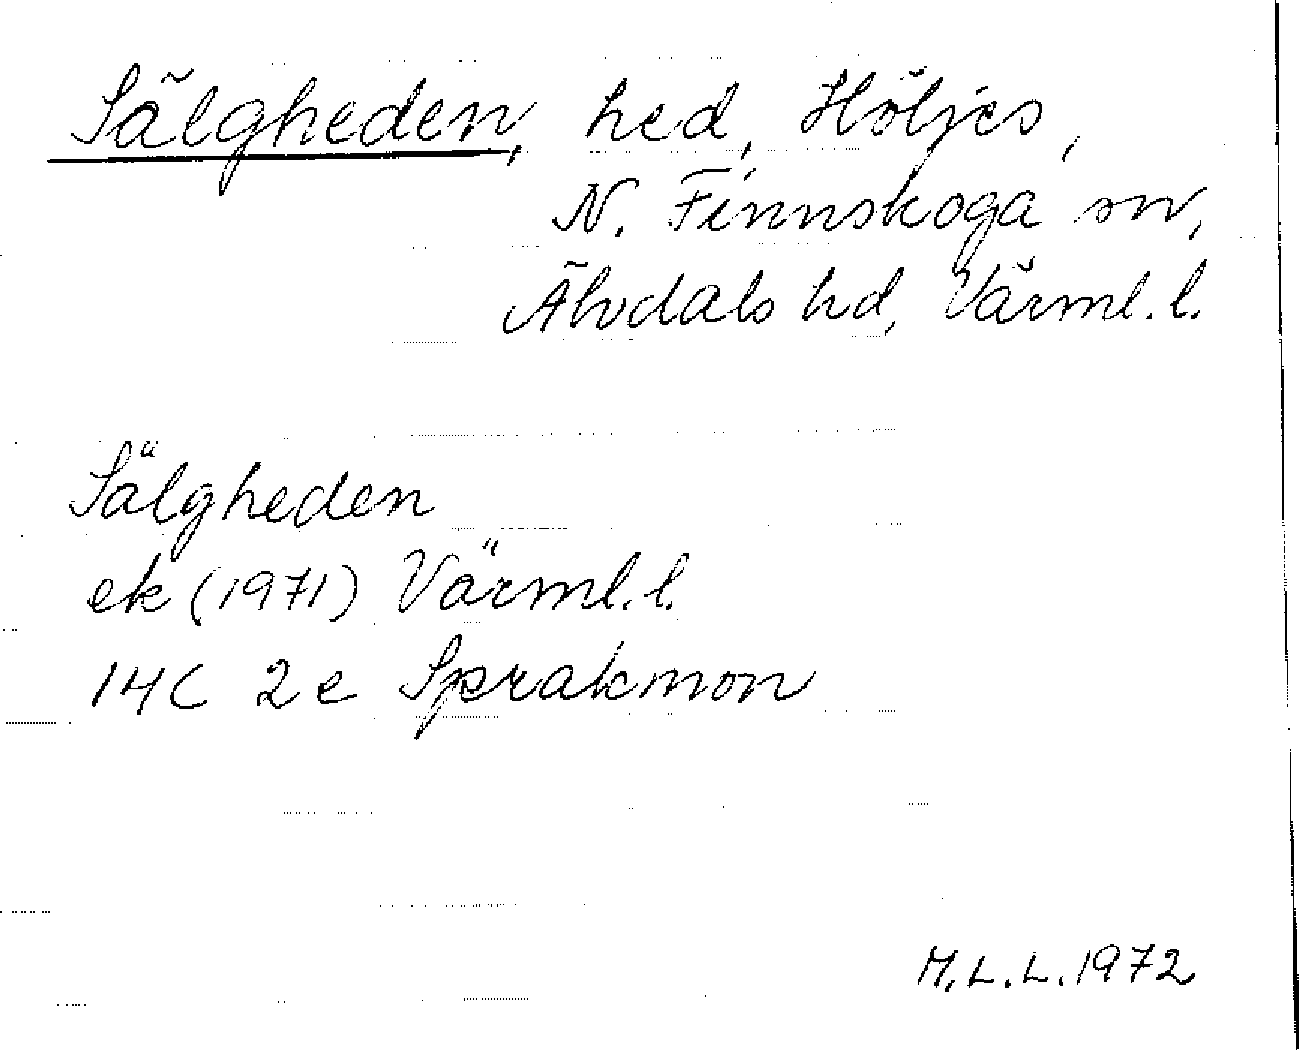 Sälgheden, hed, Höljes,
N. Finnskoga sn,
Älvdals hd, Värml. l.
Sälgheden
ek (1971) Värml. l.
14C 2e Sprakmon
M.L.L. 1972